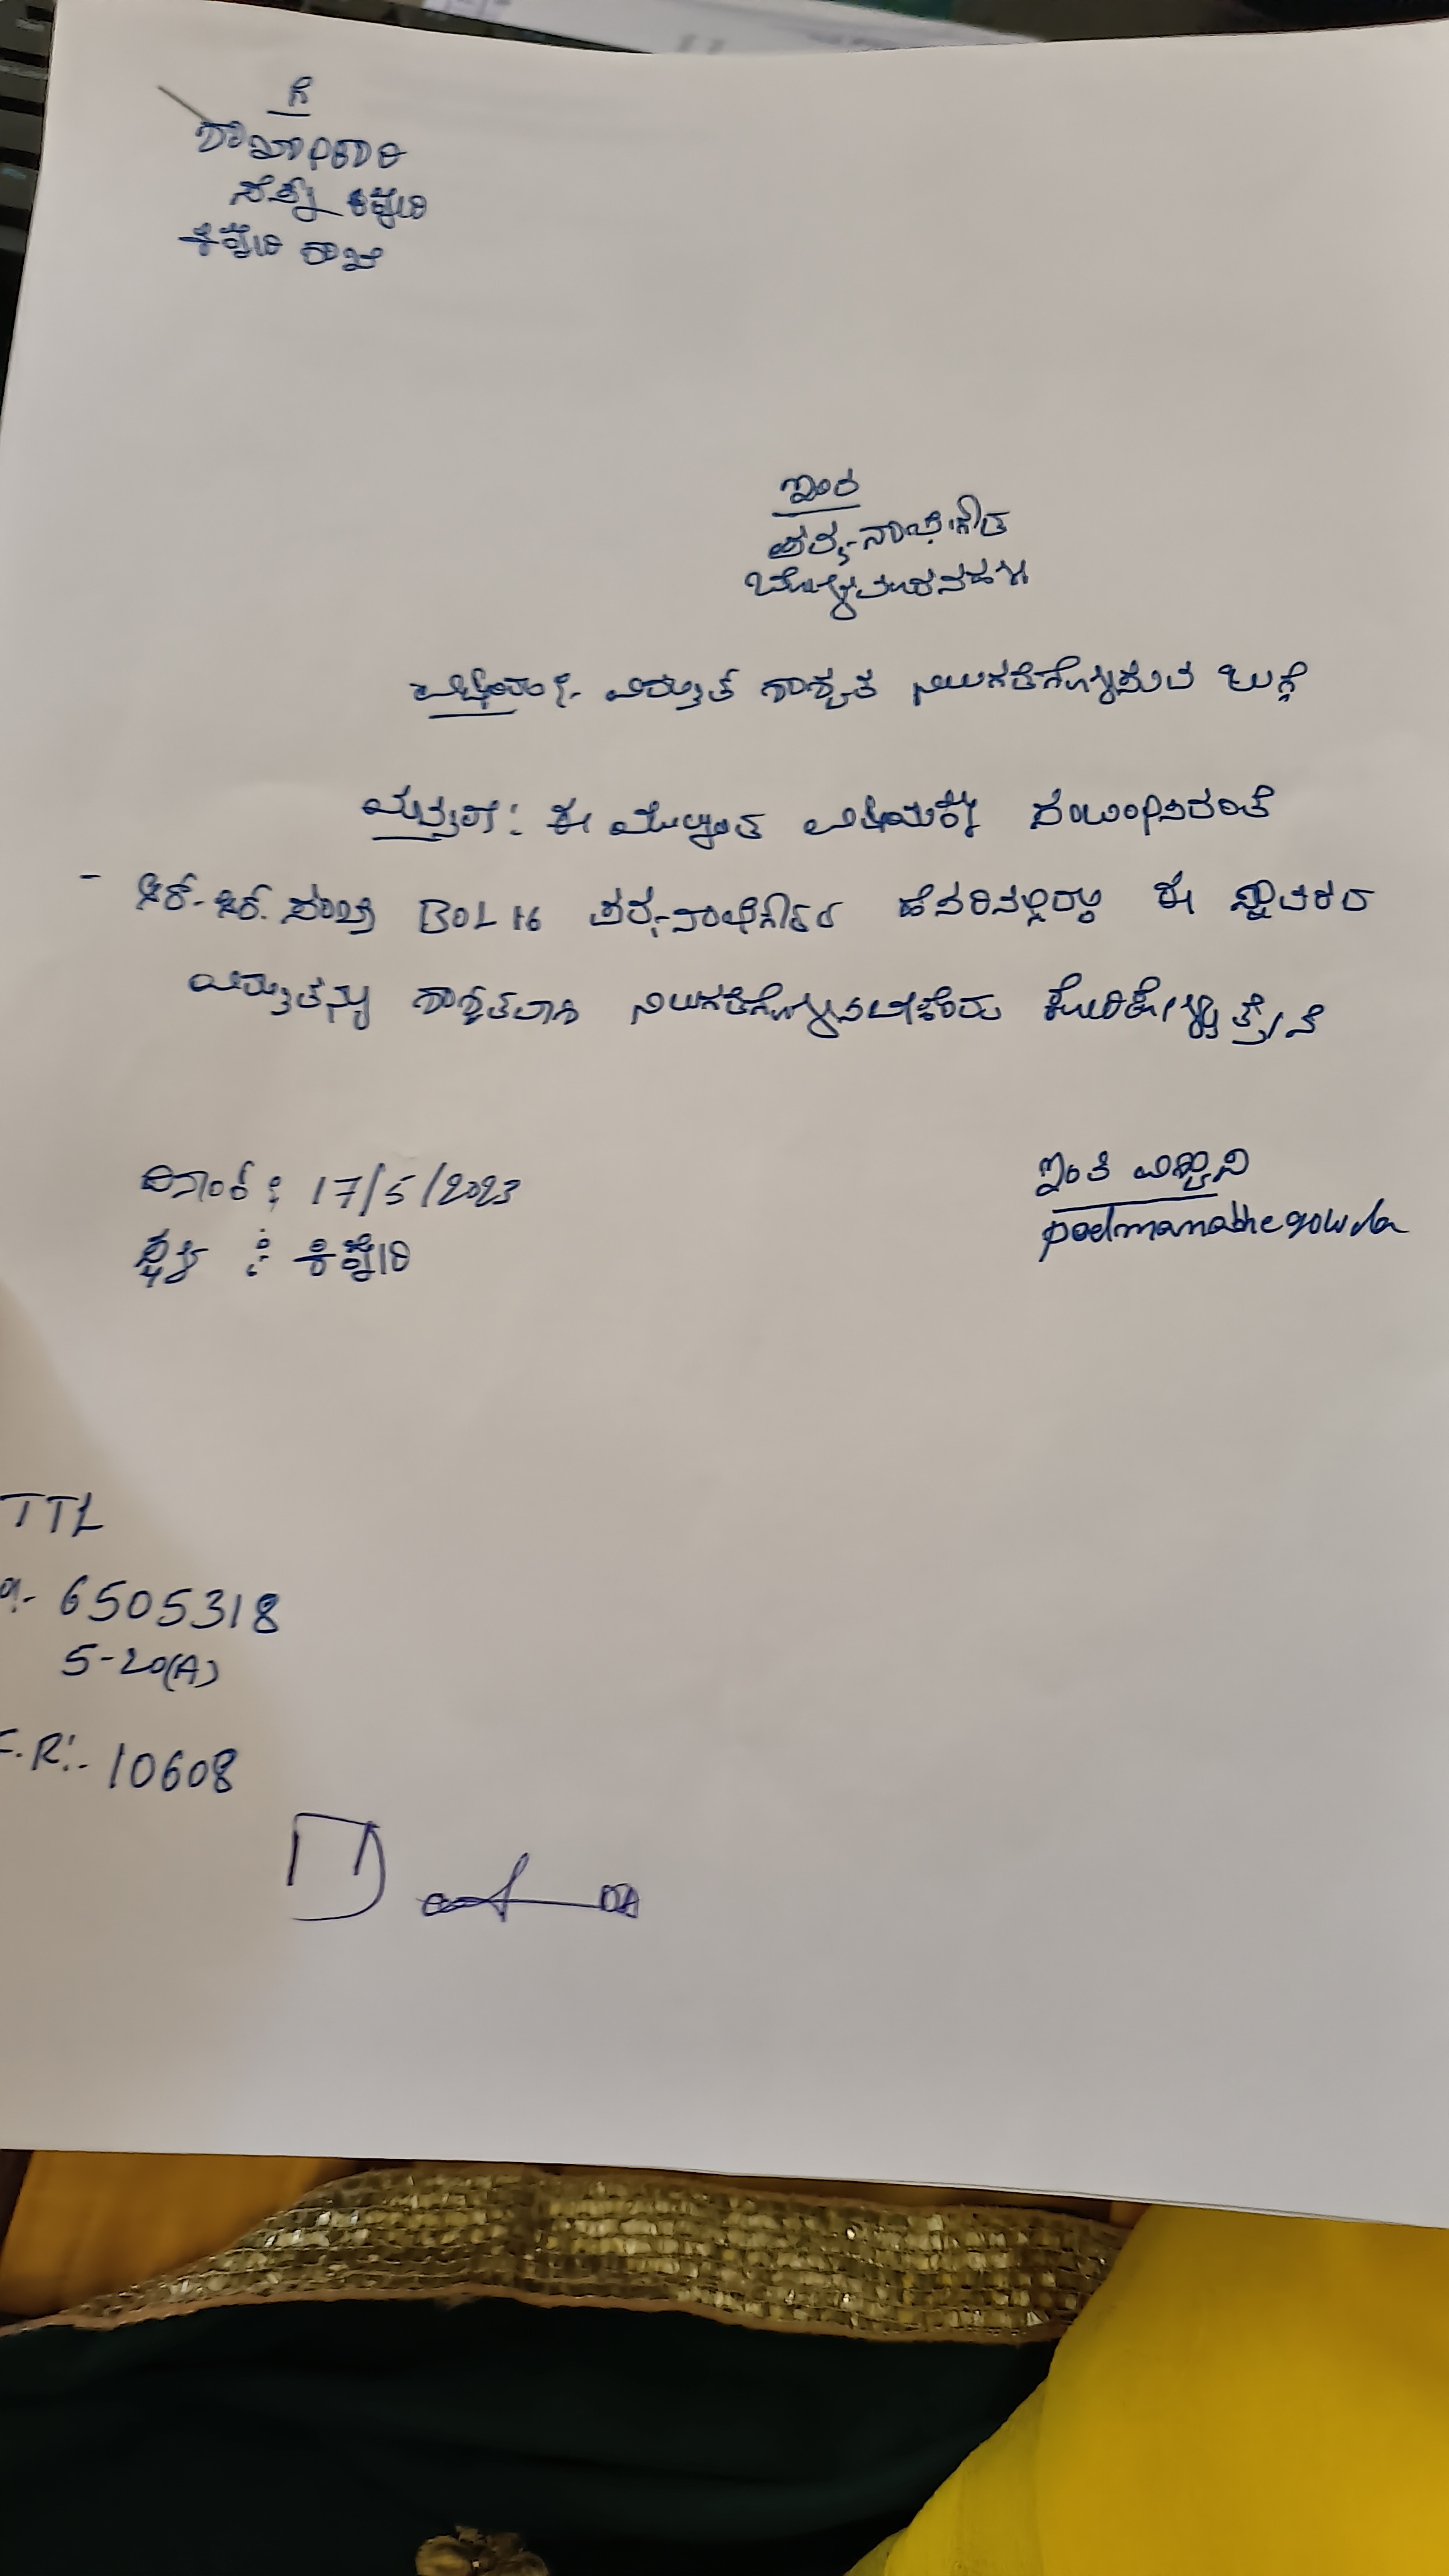 ಗೆ
ಶಾಖಾಧಿಕಾರಿ
ಸೆಸ್ಕ್ ಕಿಕ್ಕೇರಿ
ಕಿಕ್ಕೇರಿ ಶಾಖೆ
ಇಂದ
ಪದ್ಮನಾಭೇಗೌಡ
ವಿಷಯ:- ವಿದ್ಯುತ್ ಶಾಶ್ವತ ನಿಲುಗಡೆಗೊಳ್ಳಿಸುವ ಬಗ್ಗೆ
ಮಾನ್ಯರೇ: ಈ ಮೇಲ್ಕಂಡ ವಿಷಯಕ್ಕೆ ಸಂಬಂಧಿಸಿದಂತೆ
- ಆರ್.ಆರ್. ಸಂಖ್ಯೆ BOL 16 ಪದ್ಮನಾಭೇಗೌಡರ ಹೆಸರಿನಲ್ಲಿರುವ ಈ ಸ್ಥಾವರದ
ವಿದ್ಯುತನ್ನು ಶಾಶ್ವತವಾಗಿ ನಿಲುಗಡೆಗೊಳ್ಳಿಸಬೇಕೆಂದು ಕೋರಿಕೊಳ್ಳುತ್ತೇನೆ
ದಿನಾಂಕ : 17/5/2023
ಸ್ಥಳ : ಕಿಕ್ಕೇರಿ
ಇಂತಿ ವಿಶ್ವಾಸಿ
padmanabhegowda
TTL
6505318
5-20(A)
F.R:- 10608